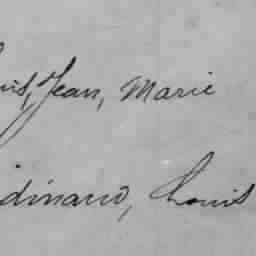 uis, Jean, Marie
dinand, Louis